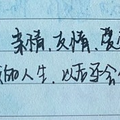 亲情，友情，爱
的人生，以后还会